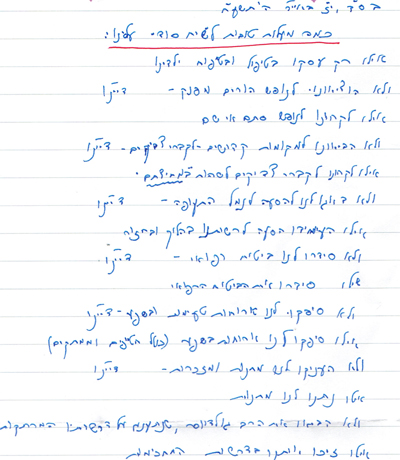 בס"ד, י"ג באייר ה'תשע"ח
כמה מעלות טובות לשיח סוד עלינו:
אילו רק עסקו בטיפול ובטיפוח ילדינו
ולא הוציאונו לנופש הורים מפנק - דיינו
אילו לקחונו לנופש סתם אי שם
ולא הביאונו למקומות קדושים - לקברי צדיקים - דיינו
אילו לקחונו לקברי צדיקים לשהות במחיצתם.
ולא דאגו לנו להסעה לנמל התעופה - דיינו
אילו העמידו הסעה לרשותנו בהלוך ובחזור
ולא סידרו לנו ביטוח רפואי - דיינו
אילו סידרו את הביטוח הרפואי
ולא סיפקו לנו ארוחות טעימות ובשפע - דיינו
אילו סיפקו לנו ארוחות בשפע (כולל חטיפים וממתקים)
ולא העניקו לנו מתנות ומזכרות - דיינו
אילו נתנו לנו מתנות
ולא הביאו את הרב גולדווסר, שנתענג על דרשותיו המרתקות
אילו זיכו אותנו בדרשות המחכימות